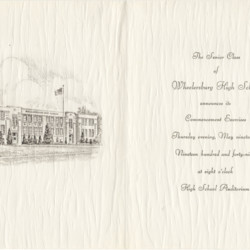 The Senior Class
of
Wheelersburg High School
announces its
Commencement Exercises
Thursday evening, May
Nineteen hundred and
at eight o'clock
High School Auditorium